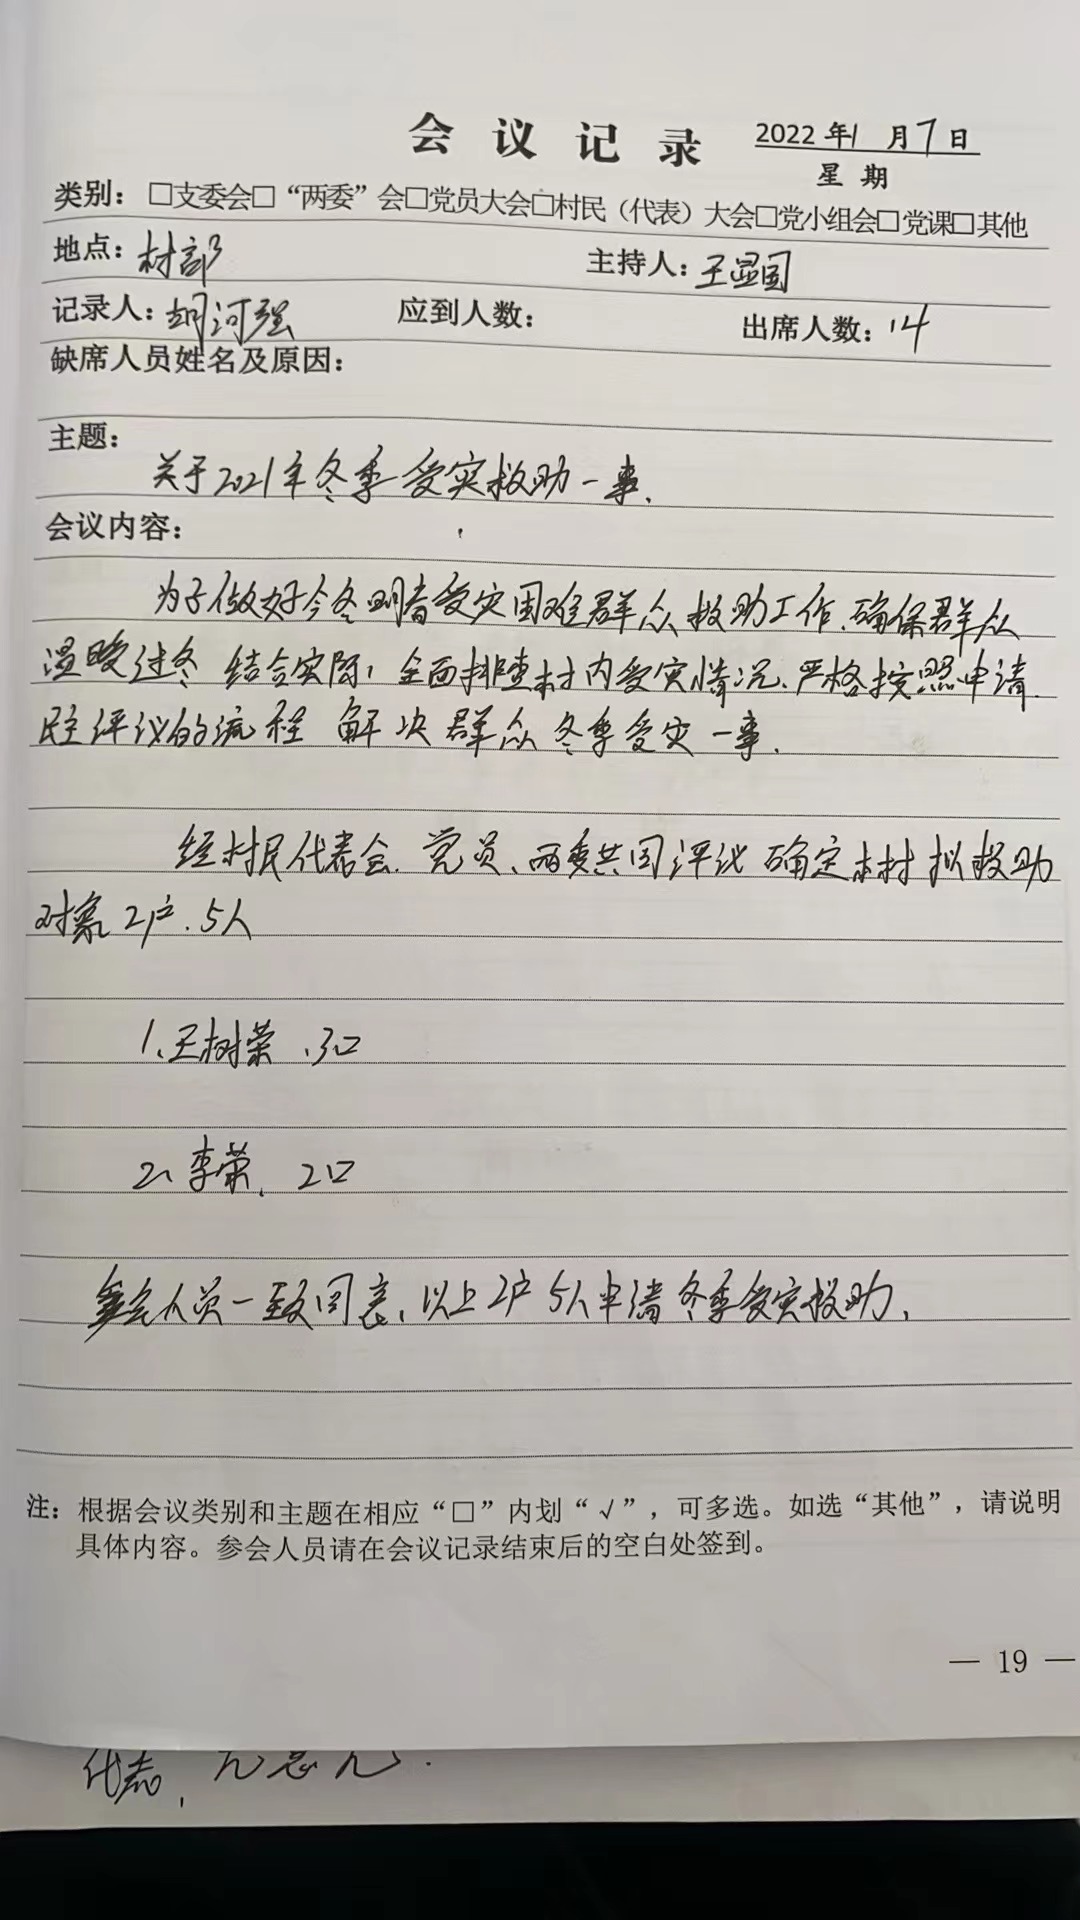 会议记录
2022年1月7日
星期
类别：□支委会□“两委”会□党员大会□村民（代表）大会□党小组会□党课□其他
地点：村部 主持人：王显国
记录人：胡河强 应到人数： 出席人数：14
缺席人员姓名及原因：
主题：
关于2021年冬季受灾救助一事.
会议内容：
为了做好今冬明春受灾困难群众救助工作、确保群众
温暖过冬 结合实际，全面排查村内受灾情况、严格按照申请.
民主评议的流程 解决群众冬季受灾一事.
经村民代表会.党员、两委共同评议 确定本村拟救助
对象2户.5人
1、王树荣、3口
2、李荣、2口
参会人员一致同意、以上2户5人申请冬季受灾救助.
注：根据会议类别和主题在相应“□”内划“√”，可多选。如选“其他”，请说明
具体内容。参会人员请在会议记录结束后的空白处签到。
— 19 —
代表，